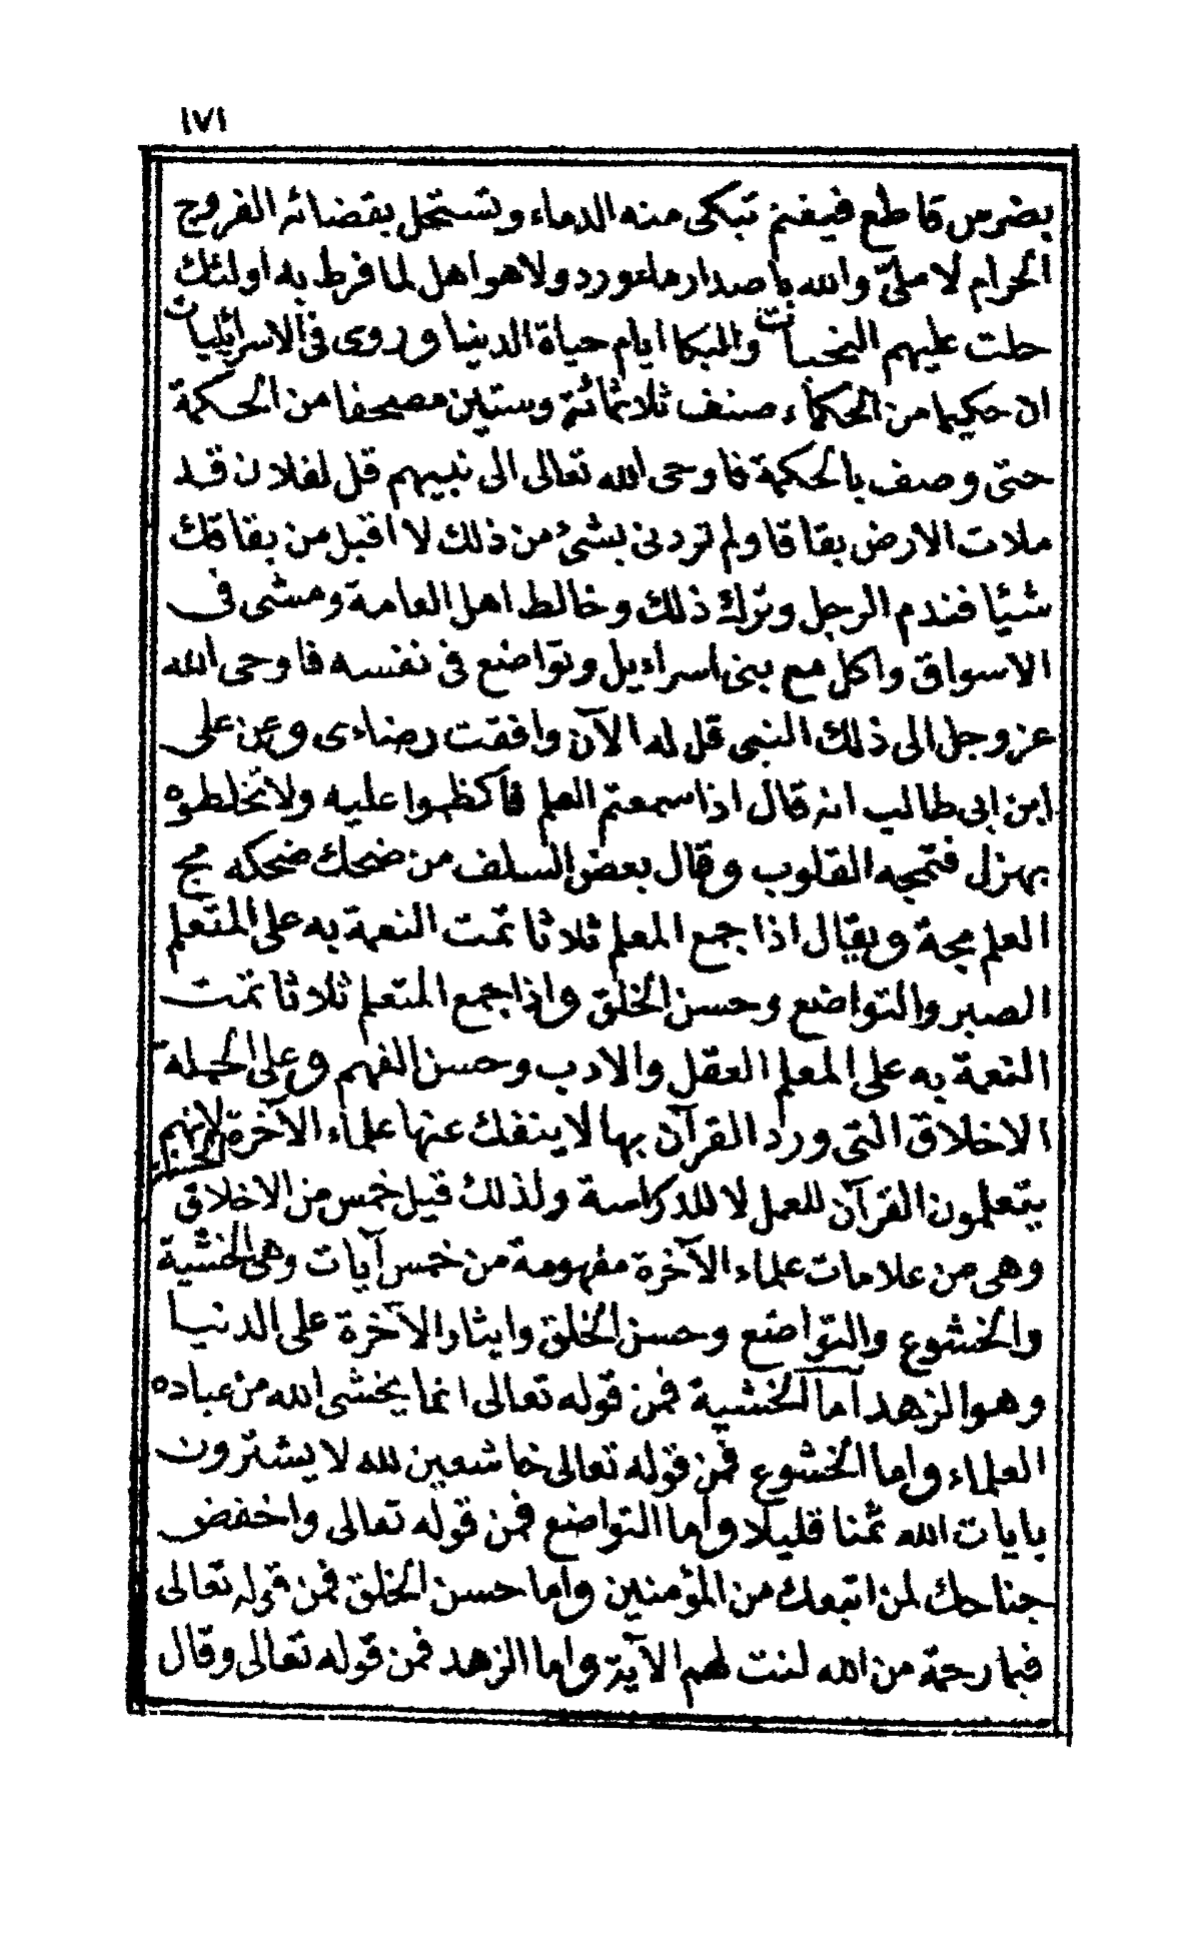 ١٧١
بضرس قاطع فيغنم تبكى منه الدماء وتستحل بقضائه الفروج
الحرام لا ملىّ والله باصدار ماءورد ولا هو اهل لما فرط به اولئك
حلت عليهم النحبات والبكا ايام حياة الدنيا وروى فى الاسرائيليات
ان حكيما من الحكماء صنف ثلاثمائة وستين مصحفا من الحكمة
حتى وصف بالحكمة فاوحى الله تعالى الى نبيهم قل لفلان قد
ملات الارض بقاقا ولم تردنى بشئ من ذلك لا اقبل من بقاقك
شيئا فندم الرجل وترك ذلك وخالط اهل العامة ومشى فى
الاسواق واكل مع بنى اسراءيل وتواضع فى نفسه فاوحى الله
عز وجل الى ذلك النبى قل له الآن وافقت رضاءى وعن على
ابن ابى طالب انه قال اذا سمعتم العلم فاكظموا عليه ولا تخلطوه
بهزل فتمجه القلوب وقال بعض السلف من ضحك ضحكه مج
العلم مجة ويقال اذا جمع المعلم ثلاثا تمت النعمة به على المتعلم
الصبر والتواضع وحسن الخلق واذا جمع المتعلم ثلاثا تمت
النعمة به على المعلم العقل والادب وحسن الفهم وعلى الجملة
الاخلاق التى ورد القرآن بها لا ينفك عنها علماء الآخرة لانهم
يتعلمون القرآن للعمل لا للدكراصة ولذلك قيل خمس من الاخلاق
وهى من علامات علماء الآخرة مفهومة من خمس آيات وهى الخشية
والخشوع والتواضع وحسن الخلق وايثار الآخرة على الدنيا
وهو الزهد اما الخشية فمن قوله تعالى انما يخشى الله من عباده
العلماء واما الخشوع فمن قوله تعالى خاشعين لله لا يشترون
بايات الله ثمنا قليلا واما التواضع فمن قوله تعالى واخفض
جناحك لمن اتبعك من المؤمنين واما حسن الخلق فمن قوله تعالى
فبما رحمة من الله لنت لهم الآية واما الزهد فمن قوله تعالى وقال